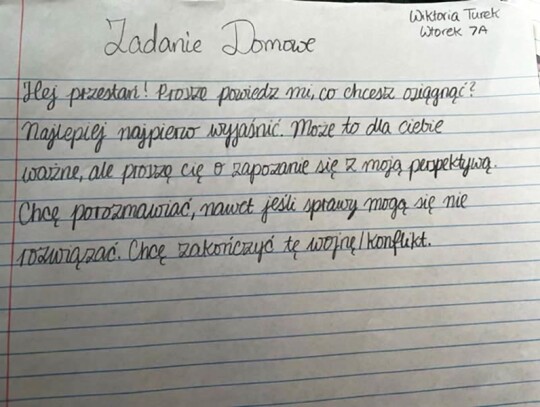 Wiktoria Turek
Wtorek 7A
Zadanie Domowe
Hej przestań! Proszę powiedz mi, co chcesz osiągnąć?
Najlepiej najpierw wyjaśnić. Może to dla ciebie
ważne, ale proszę cię o zapoznanie się z moją perspektywą.
Chcę porozmawiać, nawet jeśli sprawy mogą się nie
rozwiązać. Chcę zakończyć tę wojnę/konflikt.